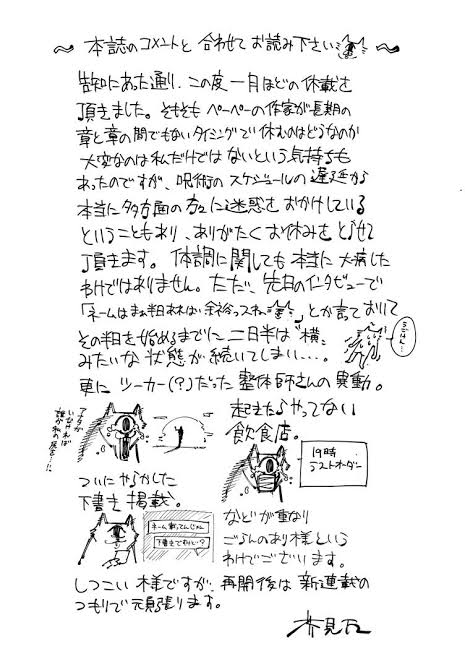 〜 本誌のコメントと合わせてお読み下さい 〜
告知にあった通り、この度一月ほどの休載を
頂きました。そもそもペーペーの作家が長期の
章と章の間でもないタイミングで休むのはどうなのか
大変なのは私だけではないという気持ちも
あったのですが、呪術のスケジュールの遅延から
本当に多方面の方々に迷惑をおかけしている
ということもあり、ありがたくお休みをとらせて
頂きます。体調に関しても本当に大病した
わけではありません。ただ、先日のインタビューで
「ネームはまぁ半日あれば余裕っスね」とか言っておいて
その半日を始めるまでに二日半は“横„
みたいな状態が続いてしまい…。
更にツーカー(?)だった整体師さんの異動。
アナタが
いなければ
誰が私の
起きたらやってない
飲食店。
19時
ラストオーダー
ついにやらかした
下書き掲載。
ネーム載ってんじゃん
下書きですけど?
などが重なり
ごらんのあり様という
わけでございます。
しつこい様ですが、再開後は新連載の
つもりで頑張ります。
芥見下々